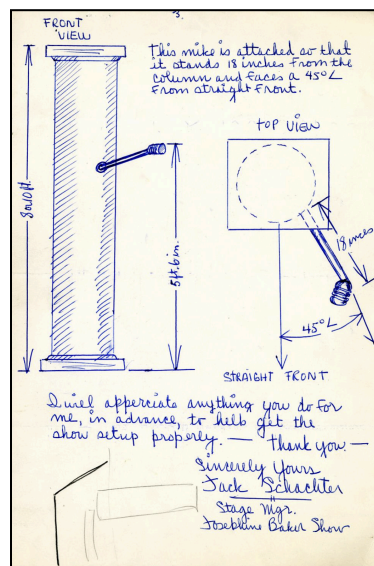 3.
FRONT
VIEW
This mike is attached so that
it stands 18 inches from the
column and faces a 45°L
from straight front.
TOP VIEW
8 to 10 ft.
5 ft. 6 in.
18 inces
45°L
STRAIGHT FRONT
I will apperciate anything you do for
me, in advance, to help get the
show setup properly. — Thank you. —
Sincerely Yours
Jack Schachter
Stage Mgr.
Josephine Baker Show